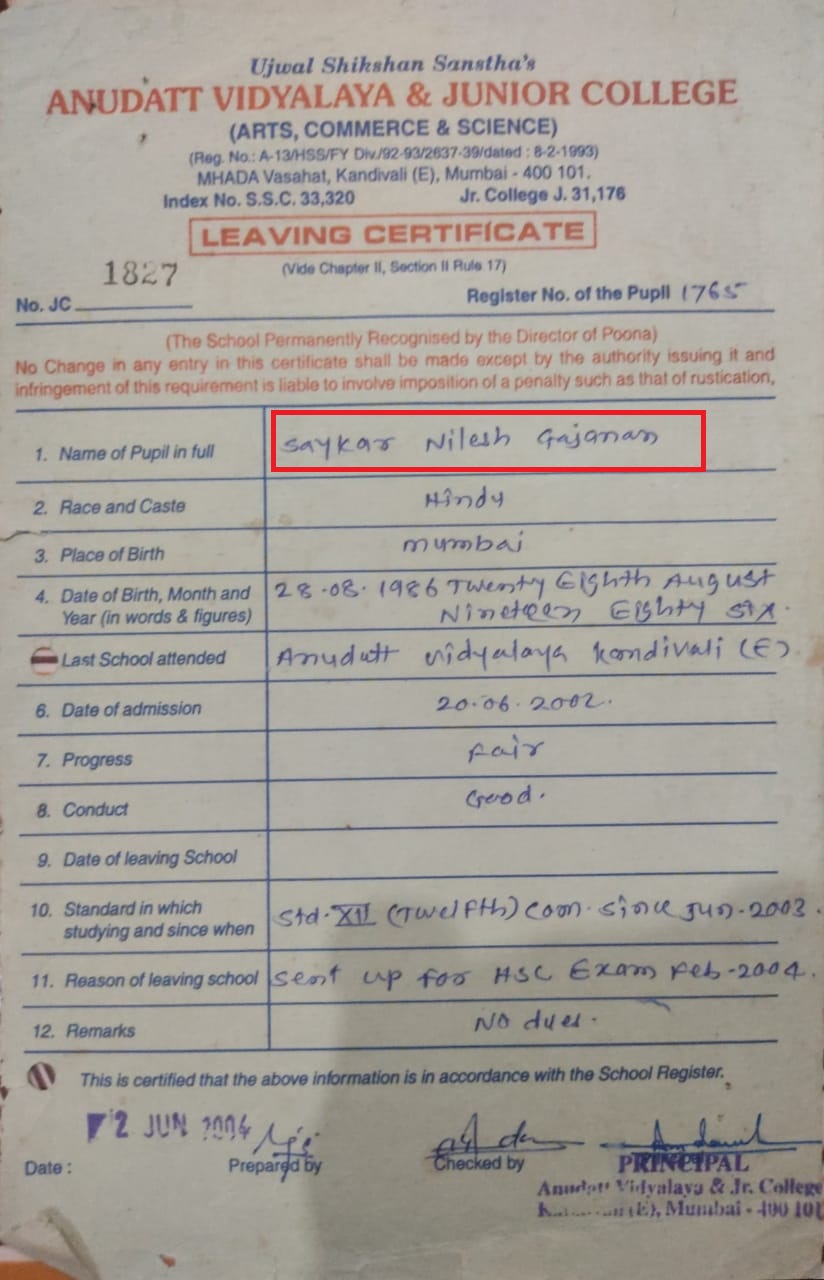 Ujwal Shikshan Sanstha's
ANUDATT VIDYALAYA & JUNIOR COLLEGE
(ARTS, COMMERCE & SCIENCE)
(Reg. No.: A-13/HSS/FY Div./92-93/2637-39/dated : 8-2-1993)
MHADA Vasahat, Kandivali (E), Mumbai - 400 101.
Index No. S.S.C. 33,320 Jr. College J. 31,176
LEAVING CERTIFICATE
(Vide Chapter II, Section II Rule 17)
No. JC 1827 Register No. of the Pupil 1765
(The School Permanently Recognised by the Director of Poona)
No Change in any entry in this certificate shall be made except by the authority issuing it and
infringement of this requirement is liable to involve imposition of a penalty such as that of rustication,
1. Name of Pupil in full Saykar Nilesh Gajanan
2. Race and Caste Hindu
3. Place of Birth mumbai
4. Date of Birth, Month and 28.08.1986 Twenty Eighth August
Year (in words & figures) Nineteen Eighty six.
Last School attended Anudatt vidyalaya kandivali (E).
6. Date of admission 20.06.2002.
7. Progress Fair
8. Conduct Good.
9. Date of leaving School
10. Standard in which
studying and since when Std. XII (Twelfth) Com. since Jun-2003.
11. Reason of leaving school sent up for HSC Exam Feb-2004.
12. Remarks No dues.
This is certified that the above information is in accordance with the School Register.
2 JUN 2004
Date : Prepared by Checked by PRINCIPAL
Anudatt Vidyalaya & Jr. College
(E), Mumbai - 400 101